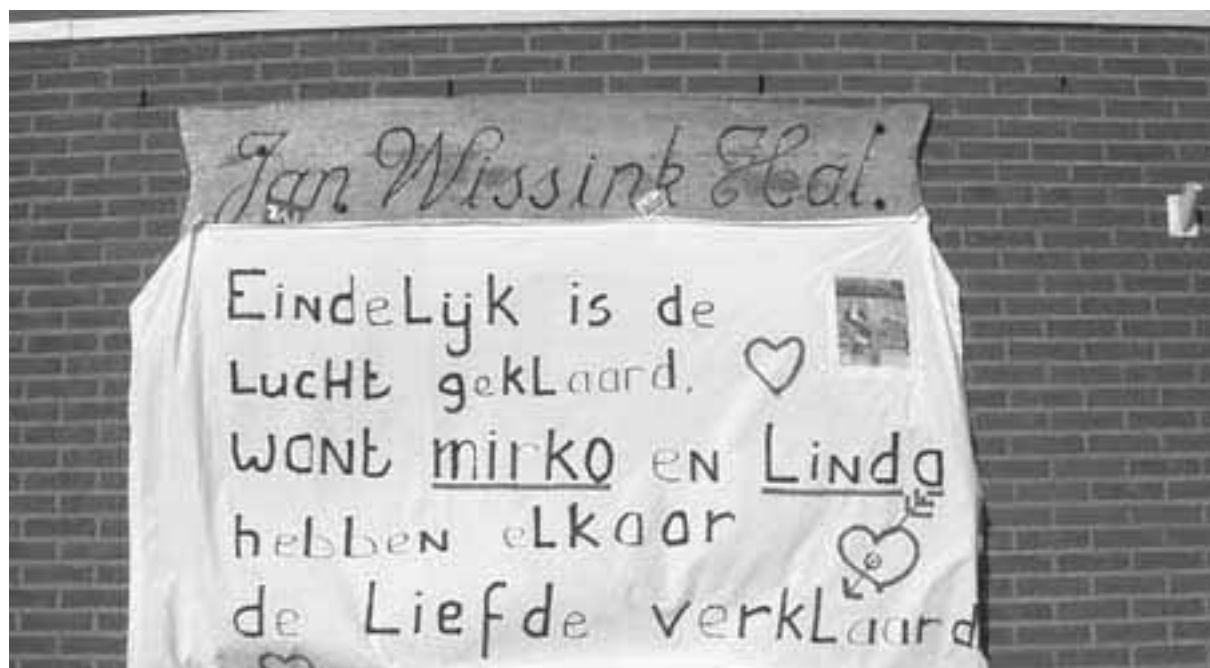 Jan Wissink Hal.
EiNdeLijk is de
LucHt gekLaard.
waNt mirko eN LiNda
hebbeN eLkaar
de Liefde verkLaard